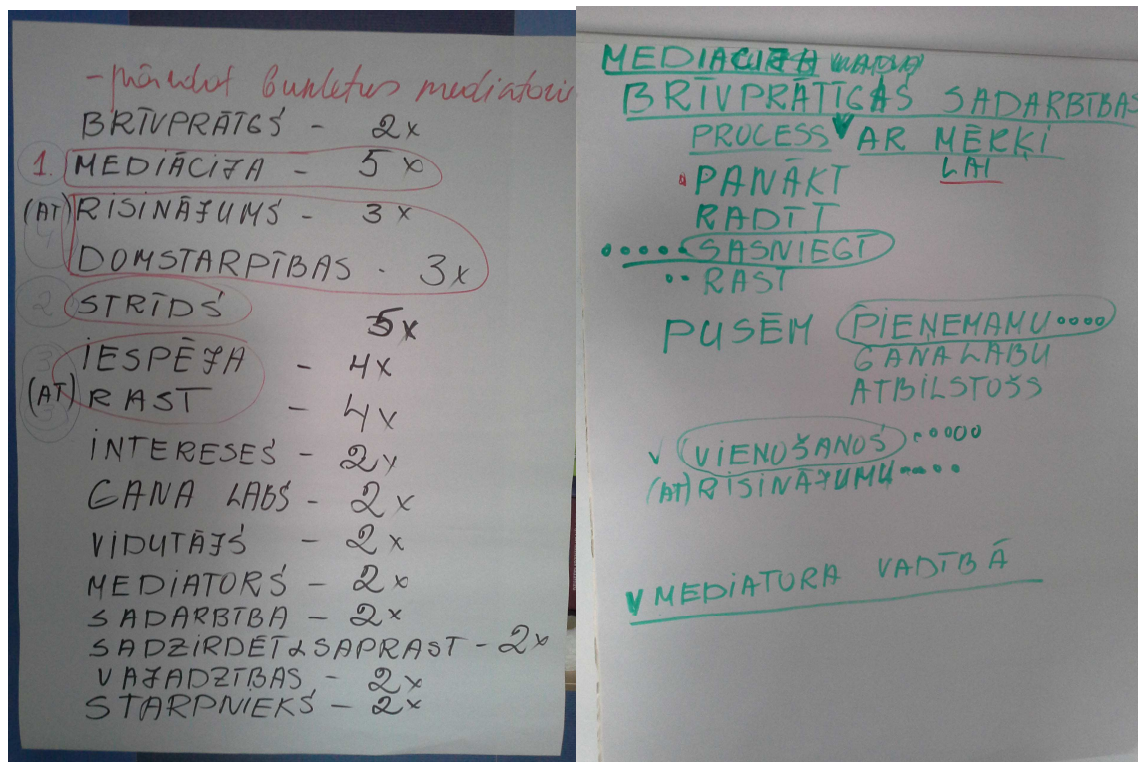 mediatoris
BRĪVPRĀTGS - 2x
1. MEDIĀCIJA - 5x
(AT) RISINĀJUMS - 3x
DOMSTARPĪBAS - 3x
2 STRĪDS 5x
3 IESPĒJA - 4x
(AT) RAST - 4x
INTERESES - 2x
GANA LABS - 2x
VIDUTĀJS - 2x
MEDIATORS - 2x
SADARBĪBA - 2x
SADZIRDĒT & SAPRAST - 2x
VAJADZĪBAS - 2x
STARPNIEKS - 2x
MEDIACIJA
BRĪVPRĀTĪGAS SADARBĪBAS
PROCESS V AR MĒRĶI
LAI
PANĀKT
RADĪT
SASNIEGT
RAST
PUSĒM PIEŅEMAMU
GANA LABU
ATBILSTOŠS
V VIENOŠANOS
(AT) RISINĀJUMU
V MEDIATORA VADĪBĀ